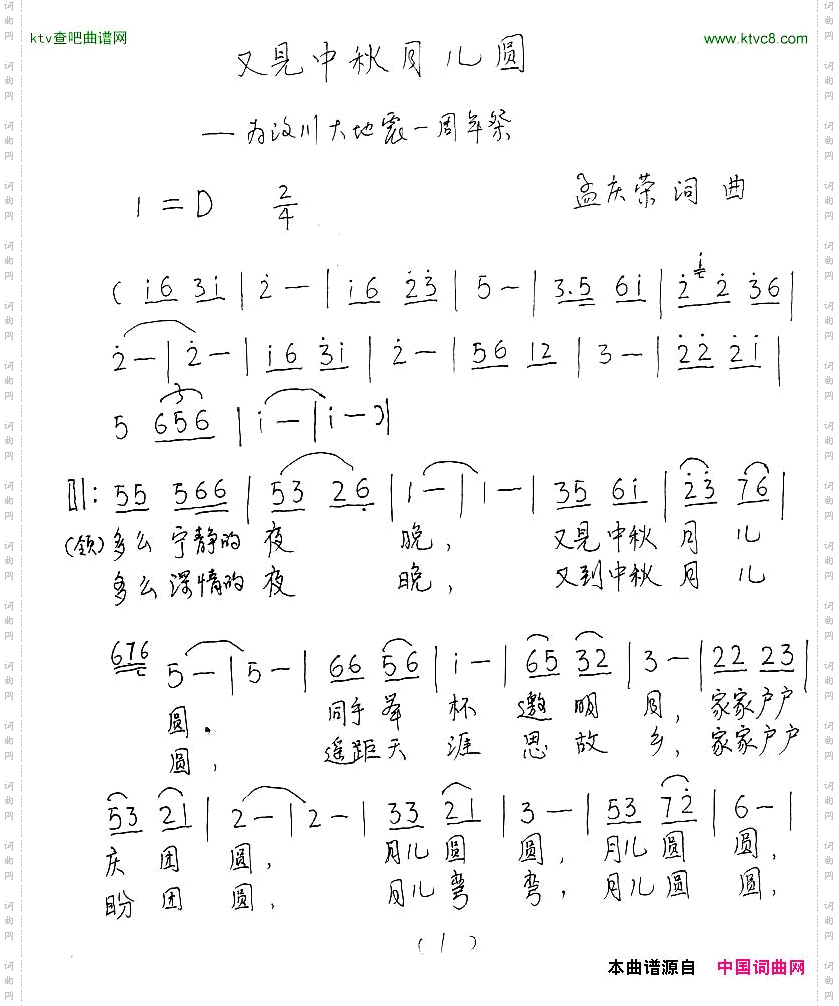 ktv查吧曲谱网 www.ktvc8.com
又见中秋月儿圆
—为汶川大地震一周年祭
1=D 2/4 孟庆荣 词 曲
( i6 3i | 2̇ — | i6 2̇3̇ | 5 — | 3.5 6i | 2̇ i 2̇ 3̇6 |
2̇ — | 2̇ — | i6 3̇i | 2̇ — | 56 12 | 3 — | 2̇2̇ 2̇i |
5 656 3 | i — | i — ) |
‖: 55 566 | 53 26̣ | 1 — | 1 — | 35 6i | 2̇3̇ 76 |
(领)多么 宁静的 夜 晚, 又见中秋 月 儿
多么 深情的 夜 晚, 又到中秋 月 儿
676 5 — | 5 — | 66 56 | i — | 65 32 | 3 — | 22 23 |
圆。 同手举 杯 邀 明 月, 家家户户
圆, 遥距天 涯 思 故 乡, 家家户户
53 21 | 2 — | 2 — | 33 21 | 3 — | 53 72̇ | 6 — |
庆 团 圆, 月儿 圆 圆, 月儿 圆 圆,
盼 团 圆, 月儿 弯 弯, 月儿 圆 圆,
(1)
本曲谱源自 中国词曲网
词曲网